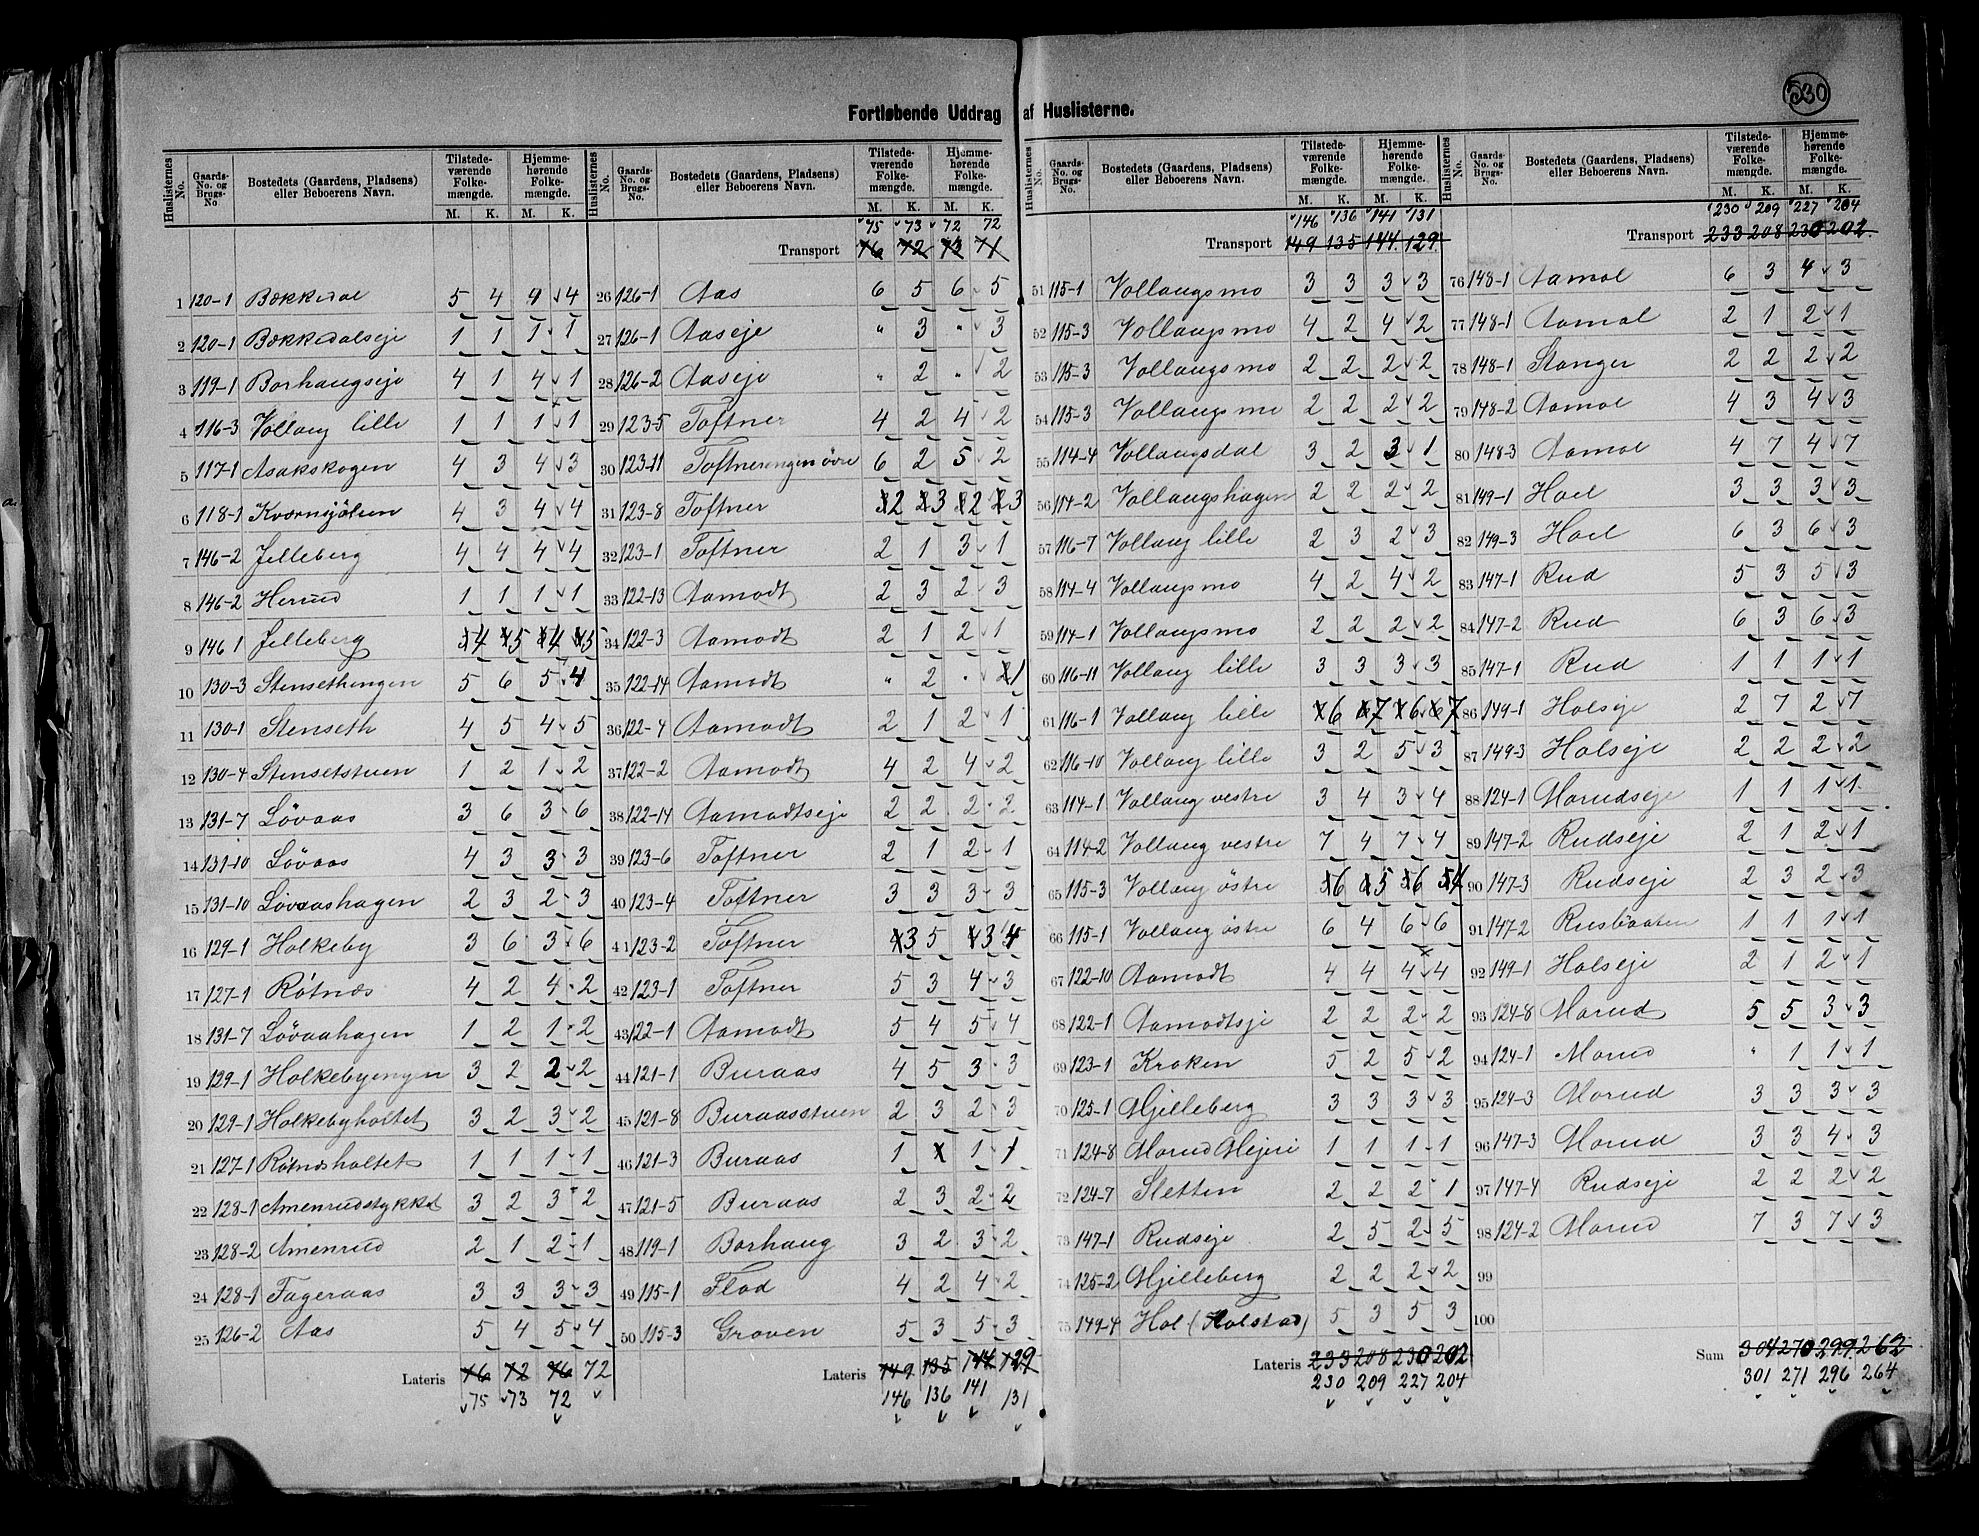 530
Fortløbende Uddrag af Huslisterne.
Huslisternes No. | Gaards-No. og Brugs-No. | Bostedets (Gaardens, Pladsens) eller Beboerens Navn. | Tilstedeværende Folkemængde. M. K. | Hjemmehørende Folkemængde. M. K.
1 120-1 Bækkedal 5 4 4 4
2 120-1 Bækkedalseje 1 1 1 1
3 119-1 Borhaugseje 4 1 4 1
4 116-3 Vollaug lille 1 1 1 1
5 117-1 Asakskogen 4 3 4 3
6 118-1 Kværnsjölien 4 3 4 4
7 146-2 Jelleberg 4 4 4 4
8 146-2 Herud 1 1 1 1
9 146 1 Jelleberg 4 5 4 5
10 130-3 Stensethengen 5 6 5 4
11 130-1 Stenseth 4 5 4 5
12 130-4 Stensetstuen 1 2 1 2
13 131-7 Lövaas 3 6 3 6
14 131-10 Lövaas 4 3 3 3
15 131-10 Lövaashagen 2 3 2 3
16 129-1 Holkeby 3 6 3 6
17 127-1 Rötnæs 4 2 4 2
18 131-7 Lövaahagen 1 2 1 2
19 129-1 Holkebyengen 3 2 2 2
20 129-1 Holkebyholtet 3 2 3 2
21 127-1 Rötnæsholtet 1 1 1 1
22 128-1 Amenrudstykket 3 2 3 2
23 128-2 Amenrud 2 1 2 1
24 128-1 Fageraas 3 3 3 3
25 126-2 Aas 5 4 5 4
Lateris 76 72 76 72
75 73 72
75 73 72 72
Transport 76 72 73 71
26 126-1 Aas 6 5 6 5
27 126-1 Aaseje " 3 " 3
28 126-2 Aaseje " 2 " 2
29 123-5 Toftner 4 2 4 2
30 123-11 Toftnerengen övre 6 2 5 2
31 123-8 Toftner 2 3 2 3
32 123-1 Toftner 2 1 3 1
33 122-13 Aamodt 2 3 2 3
34 122-3 Aamodt 2 1 2 1
35 122-14 Aamodt " 2 " 1
36 122-4 Aamodt 2 1 2 1
37 122-2 Aamodt 4 2 4 2
38 122-14 Aamodtseje 2 2 2 2
39 123-6 Toftner 2 1 2 1
40 123-4 Toftner 3 3 3 3
41 123-2 Toftner 3 5 3 4
42 123-1 Toftner 5 3 4 3
43 122-1 Aamodt 5 4 5 4
44 121-1 Buraas 4 5 3 3
45 121-8 Buraasstuen 2 3 2 3
46 121-3 Buraas 1 x 1 1
47 121-5 Buraas 2 3 2 2
48 119-1 Borhaug 3 2 3 2
49 115-1 Flod 4 2 4 2
50 115-3 Groven 5 3 5 3
Lateris 149 135 144 129
146 136 141 131
146 136 141 131
Transport 149 135 144 129
51 115-1 Vollaugsmo 3 3 3 3
52 115-3 Vollaugsmo 4 2 4 2
53 115-3 Vollaugsmo 2 2 2 2
54 115-3 Vollaugsmo 2 2 2 2
55 114-4 Vollaugsdal 3 2 3 1
56 114-2 Vollaugshagen 2 2 2 2
57 116-7 Vollaug lille 2 3 2 3
58 114-4 Vollaugsmo 4 2 4 2
59 114-1 Vollaugsmo 2 2 2 2
60 116-11 Vollaug lille 3 3 3 3
61 116-1 Vollaug lille 6 7 6 7
62 116-10 Vollaug lille 3 2 5 3
63 114-1 Vollaug vestre 3 4 3 4
64 114-2 Vollaug vestre 7 4 7 4
65 115-3 Vollaug östre 6 5 6 4
66 115-1 Vollaug östre 6 4 6 6
67 122-10 Aamodt 4 4 4 4
68 122-1 Aamodtsje 2 2 2 2
69 123-1 Kroken 5 2 5 2
70 125-1 Gjelleberg 3 3 3 3
71 124-8 Morud Mejeri 1 1 1 1
72 124-7 Sletten 2 2 2 1
73 147-1 Rudseje 2 5 2 5
74 125-2 Gjelleberg 2 2 2 2
75 149-4 Hol (Holstad) 5 3 5 3
Lateris 233 208 230 202
230 209 227 204
230 209 227 204
Transport 233 208 230 202.
76 148-1 Aamol 6 3 4 3
77 148-1 Aamol 2 1 2 1
78 148-1 Stanger 2 2 2 2
79 148-2 Aamol 4 3 4 3
80 148-3 Aamol 4 7 4 7
81 149-1 Hoel 3 3 3 3
82 149-3 Hoel 6 3 6 3
83 147-1 Rud 5 3 5 3
84 147-2 Rud 6 3 6 3
85 147-1 Rud 1 1 1 1
86 149-1 Holseje 2 7 2 7
87 149-3 Holseje 2 2 2 2
88 124-1 Morudseje 1 1 1 1
89 147-2 Rudseje 2 1 2 1
90 147-3 Rudseje 2 3 2 3
91 147-2 Rusbraaten 1 1 1 1
92 149-1 Holseje 2 1 2 1
93 124-8 Morud 5 5 3 3
94 124-1 Morud " 1 1 1
95 124-3 Morud 3 3 3 3
96 147-3 Morud 3 3 4 3
97 147-4 Rudseje 2 2 2 2
98 124-2 Morud 7 3 7 3
99
100
Sum 304 270 299. 262
301 271 296 264